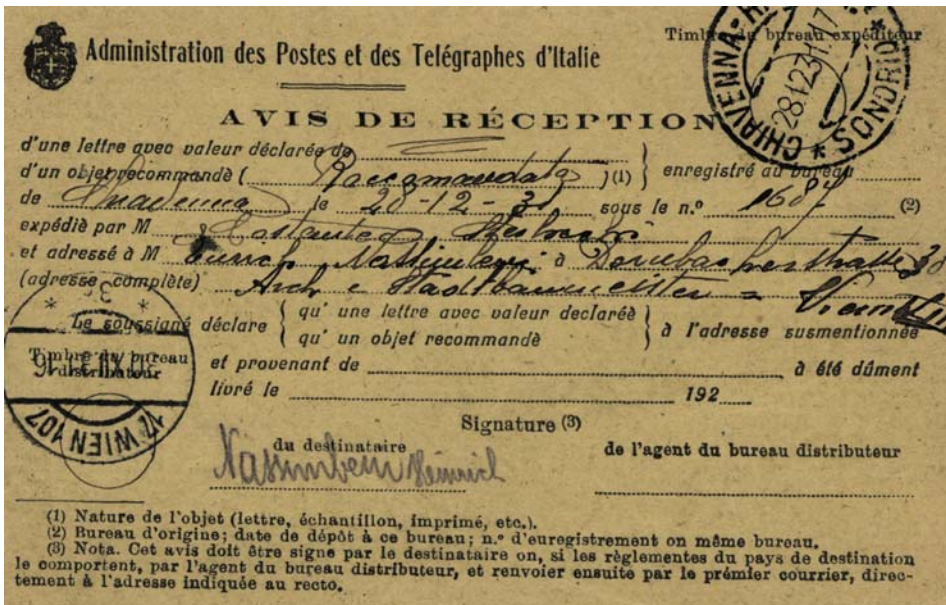 Administration des Postes et des Telégraphes d'Italie
Timbre du bureau expéditeur
CHIAVENNA * SONDRIO *
AVIS DE RÉCEPTION
d'une lettre avec valeur déclarée de
d'un objet recommandè ( Raccomandata )(1) enregistré au bureau
de le 28-12-31 sous le n.º 1687 (2)
expédié par M
et adressé à M à Dornbacherstrasse 38
(adresse complète) Arch e Stadtbaumeister = Vienna
Le soussigné déclare { qu' une lettre avec valeur declaréè } à l'adresse susmentionnée
{ qu' un objet recommandè }
Timbre du bureau distributeur
et provenant de à été dûment
livré le 192
17 WIEN 107
Signature (3)
du destinataire
de l'agent du bureau distributeur
Nassimbeni Heinrich
(1) Nature de l'objet (lettre, échantillon, imprimé, etc.).
(2) Bureau d'origine; date de dépôt à ce bureau; n.º d'euregistrement on même bureau.
(3) Nota. Cet avis doit être signe par le destinataire on, si les règlementes du pays de destination
le comportent, par l'agent du bureau distributeur, et renvoier ensuite par le prémier courrier, direc-
tement à l'adresse indiquée au recto.